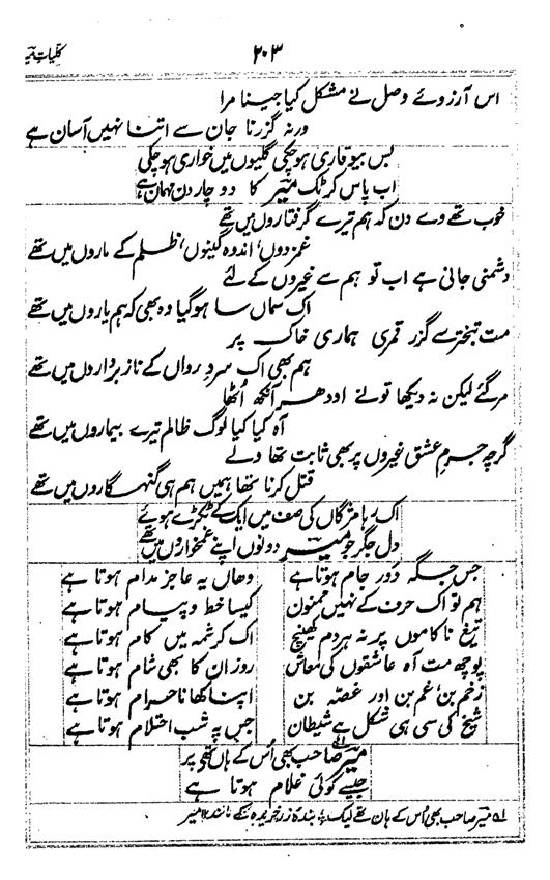 ۲۰۳
کلیاتِ میر
اس آرزوئے وصل نے مشکل کیا جینا مرا
ورنہ گزرنا جان سے اتنا نہیں آسان ہے
بس بیوقاری ہوچکی گلیوں میں خواری ہوچکی
اب پاس کر ٹک میر کا دو چار دن مہمان ہے
خوب تھے وے دن کہ ہم تیرے گرفتاروں میں تھے
غمزدوں، اندوہ گینوں، ظلم کے ماروں میں تھے
دشمنی جانی ہے اب تو ہم سے غیروں کے لئے
اک سماں سا ہوگیا وہ بھی کہ ہم یاروں میں تھے
مت تبختر سے گزر قمری ہماری خاک پر
ہم بھی اک سرو رواں کے ناز برداروں میں تھے
مرگئے لیکن نہ دیکھا تونے اودھر آنکھ اُٹھا
آہ کیا کیا لوگ ظالم تیرے بیماروں میں تھے
گرچہ جرمِ عشق غیروں پر بھی ثابت تھا ولے
قتل کرنا تھا ہمیں ہم ہی گنہگاروں میں تھے
اک رہا مژگاں کی صف میں ایک کے ٹکڑے ہوئے
دل جگر جو میر دونوں اپنے غمخواروں میں تھے
جس جگہ دَور جام ہوتا ہے وھاں یہ عاجز مدام ہوتا ہے
ہم تو اک حرف کے نہیں ممنون کیسا خط و پیام ہوتا ہے
تیغ ناکاموں پر نہ ہر دم کھینچ اک کرشمہ میں کام ہوتا ہے
پوچھ مت آہ عاشقوں کی معاش روز ان کا بھی شام ہوتا ہے
زخم بن، غم بن اور غصہ بن اپنا کھانا حرام ہوتا ہے
شیخ کی سی ہی شکل ہے شیطان جس پہ شب احتلام ہوتا ہے
میر صاحب بھی اُس کے ہاں تھے پر
جیسے کوئی غلام ہوتا ہے
لہ میر صاحب بھی اُس کے ہاں تھے لیک؛ بندۂ زر خریدہ کے مانند